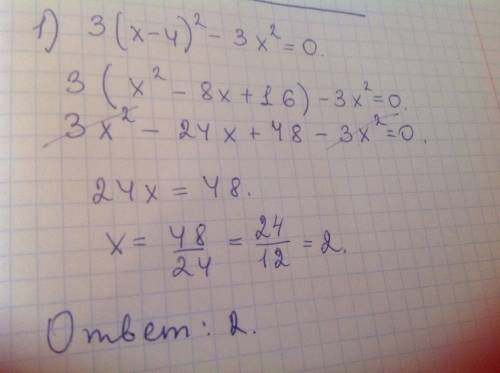 1) 3(x-4)² - 3x² = 0.
3(x² - 8x + 16) - 3x² = 0.
3x² - 24x + 48 - 3x² = 0.
24x = 48.
x = 48/24 = 24/12 = 2.
Ответ: 2.